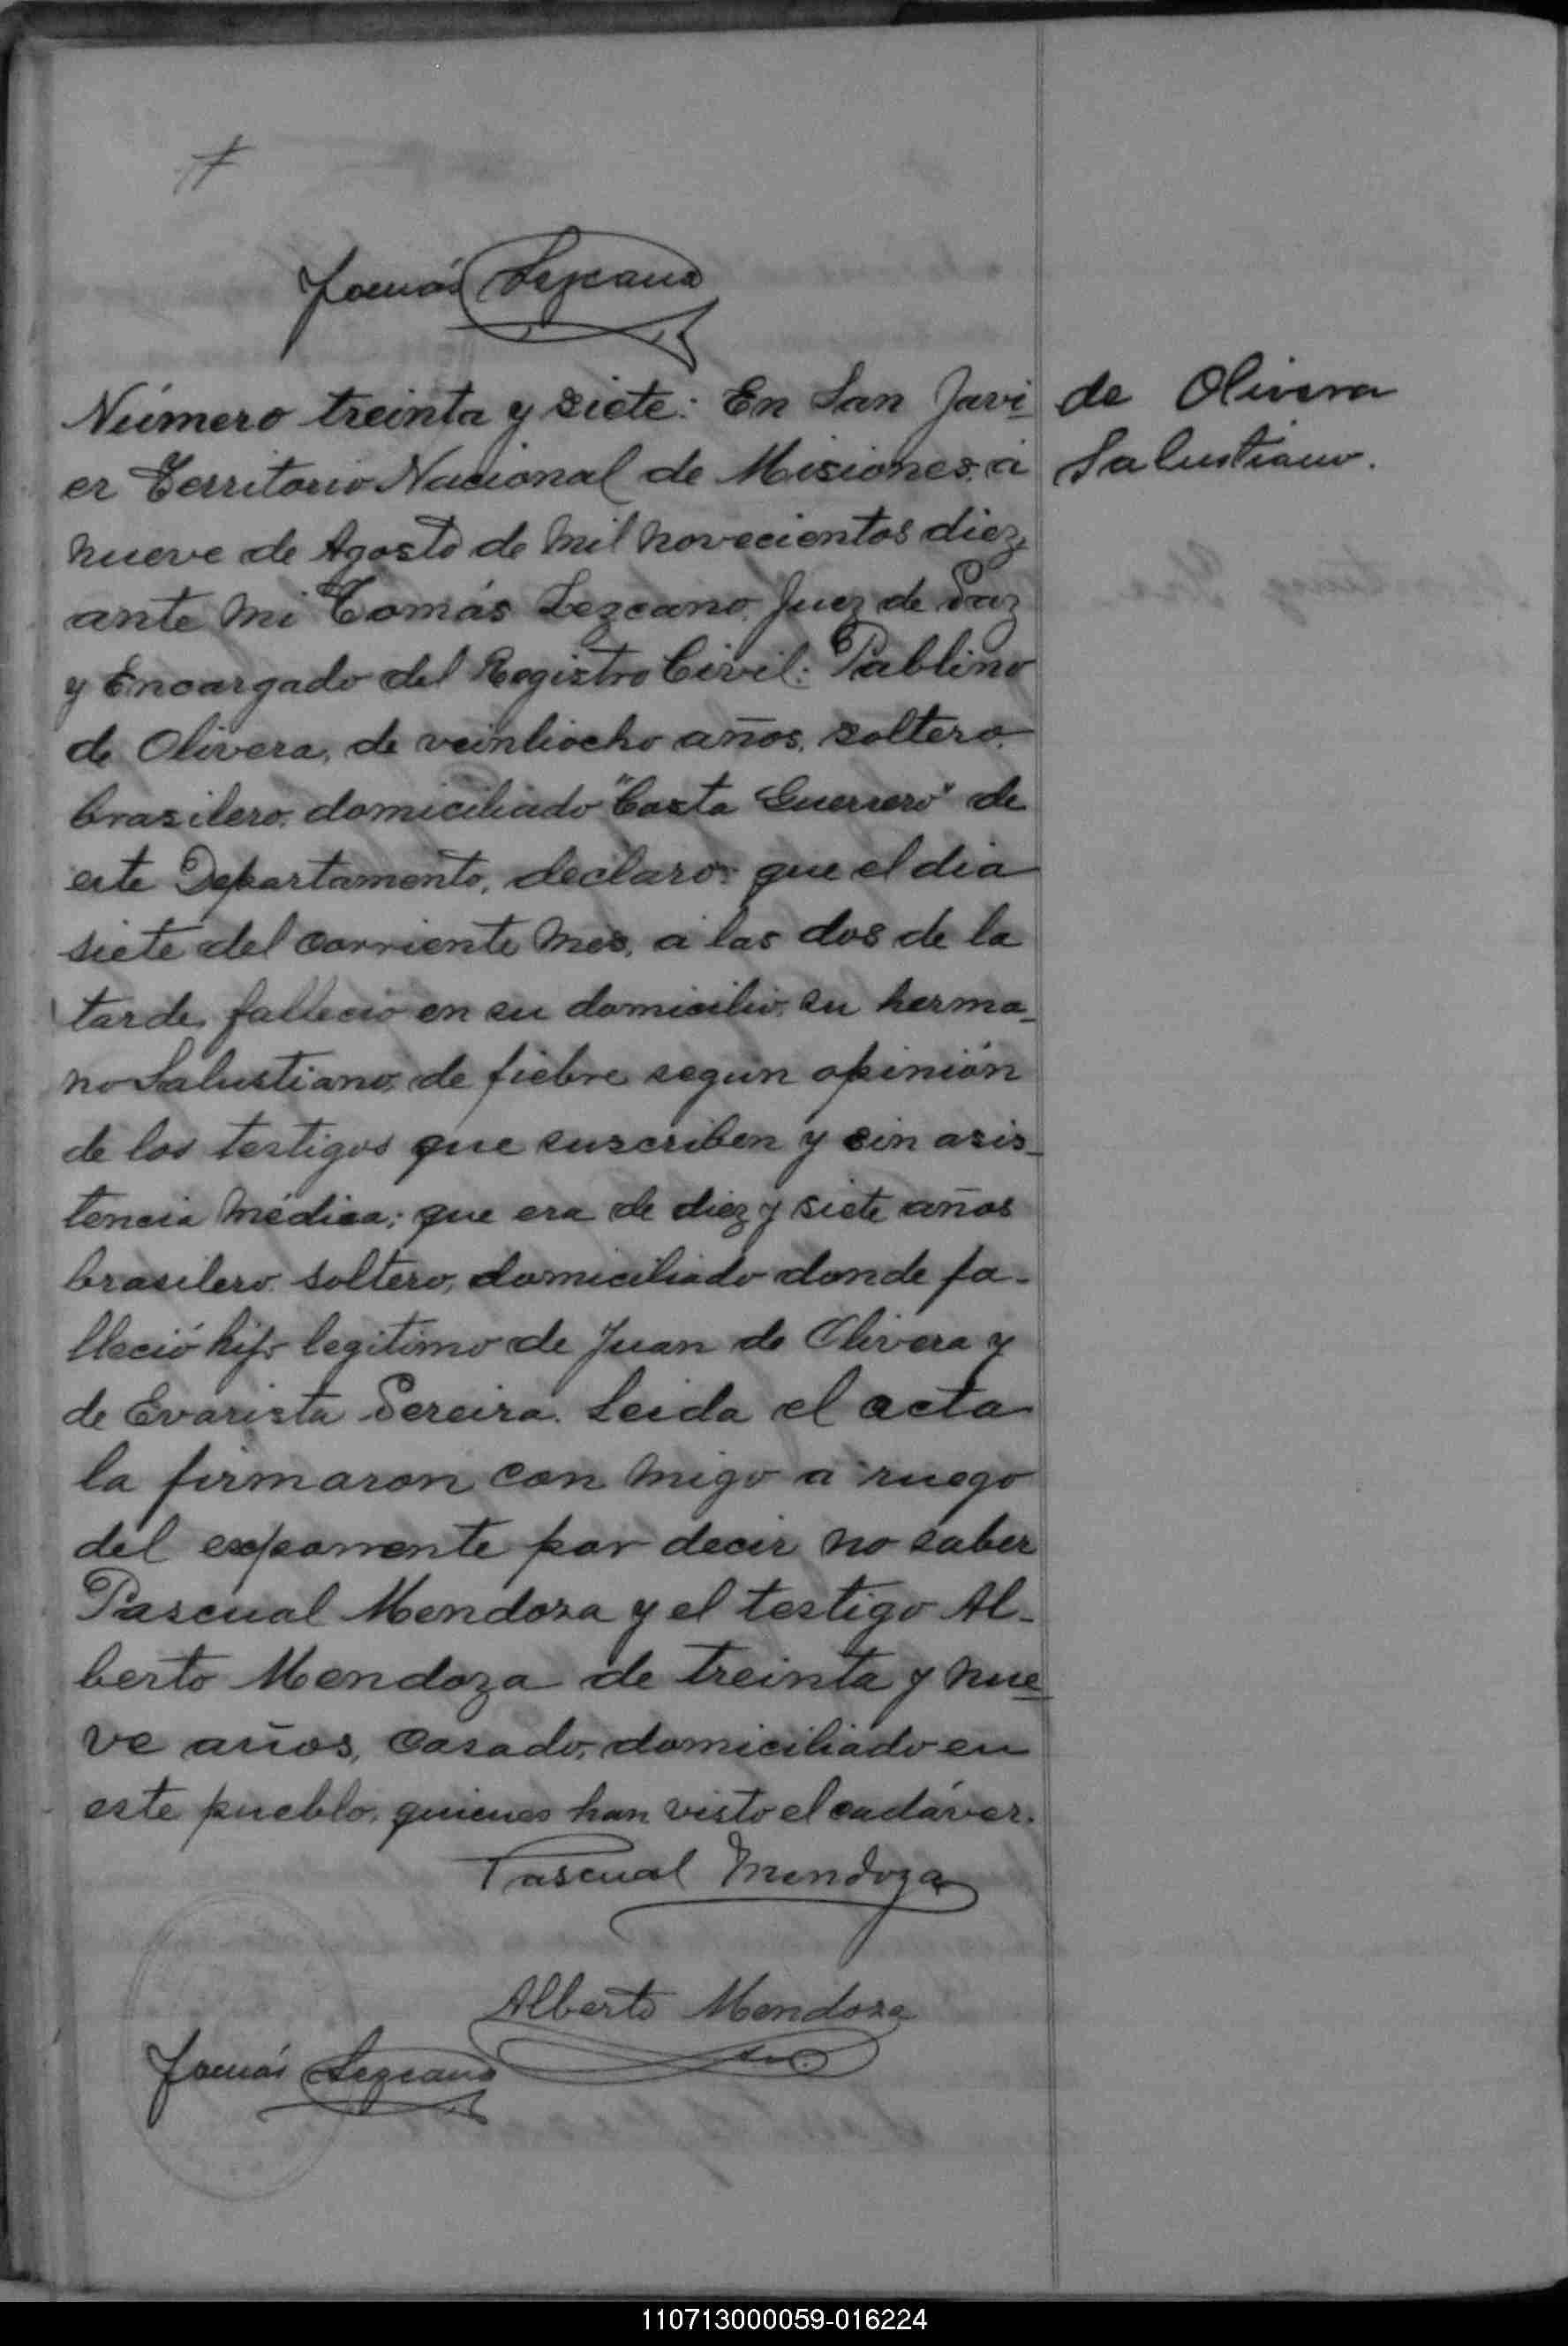 Tomás Lezcano
Número treinta y siete: En San Javi-
de Olivera
er Territorio Nacional de Misiones, á
Salustiano.
nueve de Agosto de mil novecientos diez,
ante mi Tomás Lezcano, Juez de Paz
y Encargado del Registro Civil: Pablino
de Olivera, de veintiocho años, soltero,
brasilero, domiciliado "Costa Guerrero" de
este Departamento, declaró: que el dia
siete del corriente mes, á las dos de la
tarde, falleció en su domicilio, su herma-
no Salustiano, de fiebre segun opinión
de los testigos que suscriben y sin asis-
tencia médica; que era de diez y siete años
brasilero, soltero, domiciliado donde fa-
lleció hijo legitimo de Juan de Olivera y
de Evarista Pereira. Leida el acta
la firmaron con migo a ruego
del exponente por decir no saber
Pascual Mendoza y el testigo Al-
berto Mendoza de treinta y nue-
ve años, casado, domiciliado en
este pueblo, quienes han visto el cadáver.
Pascual Mendoza
Alberto Mendoza
Tomás Lezcano
110713000059-016224